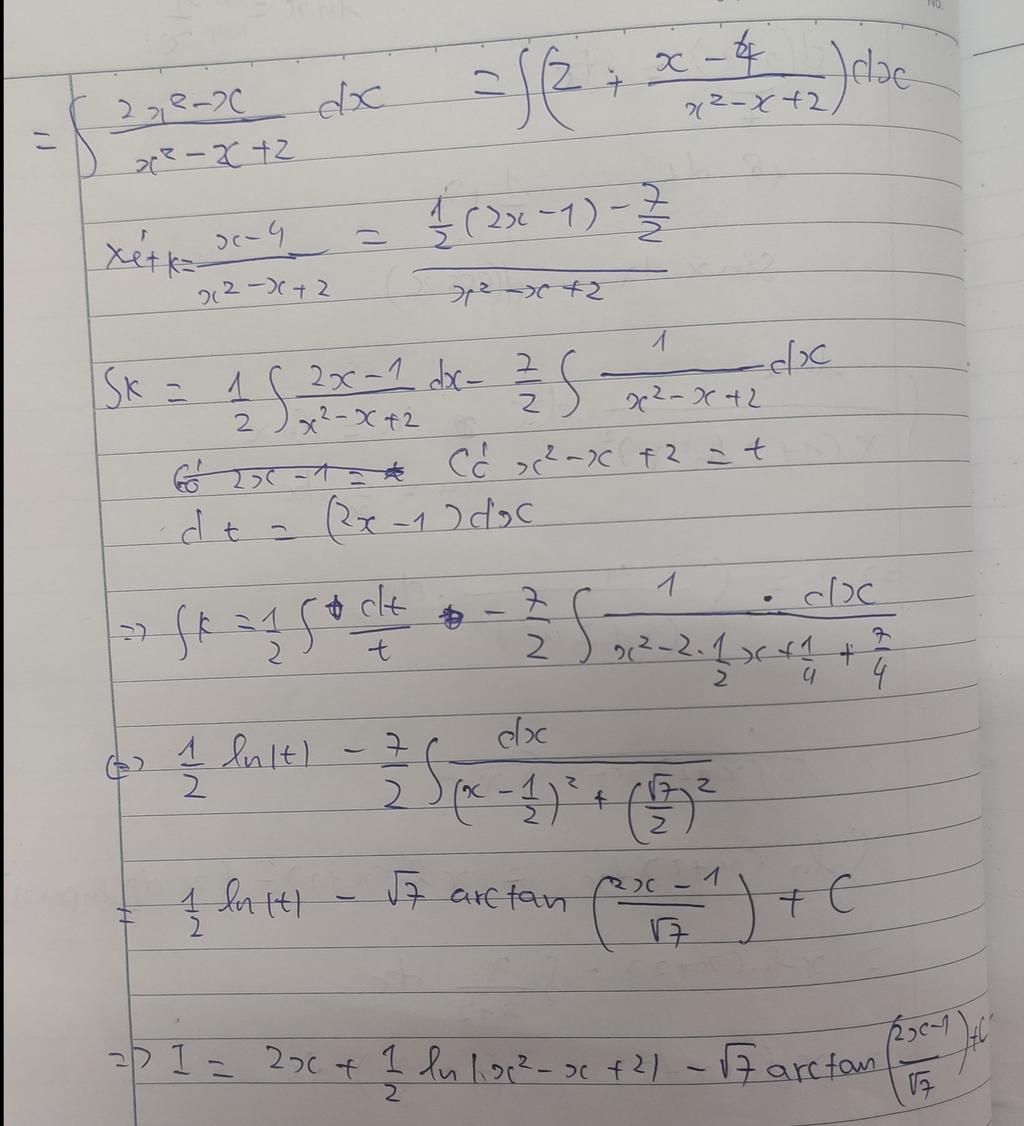 No.
= ∫ (2x²-x)/(x²-x+2) dx = ∫(2 + (x-4)/(x²-x+2))dx
Xét k = (x-4)/(x²-x+2) = (1/2(2x-1) - 7/2)/(x²-x+2)
∫k = 1/2 ∫ (2x-1)/(x²-x+2) dx - 7/2 ∫ 1/(x²-x+2) dx
Có x²-x+2 = t
dt = (2x-1)dx
=> ∫k = 1/2 ∫ dt/t - 7/2 ∫ (1 . dx)/(x²-2.1/2x+1/4+7/4)
<=> 1/2 ln|t| - 7/2 ∫ dx/((x-1/2)²+(√7/2)²)
= 1/2 ln|t| - √7 arctan((2x-1)/√7) + C
=> I = 2x + 1/2 ln|x²-x+2| - √7 arctan((2x-1)/√7)+C